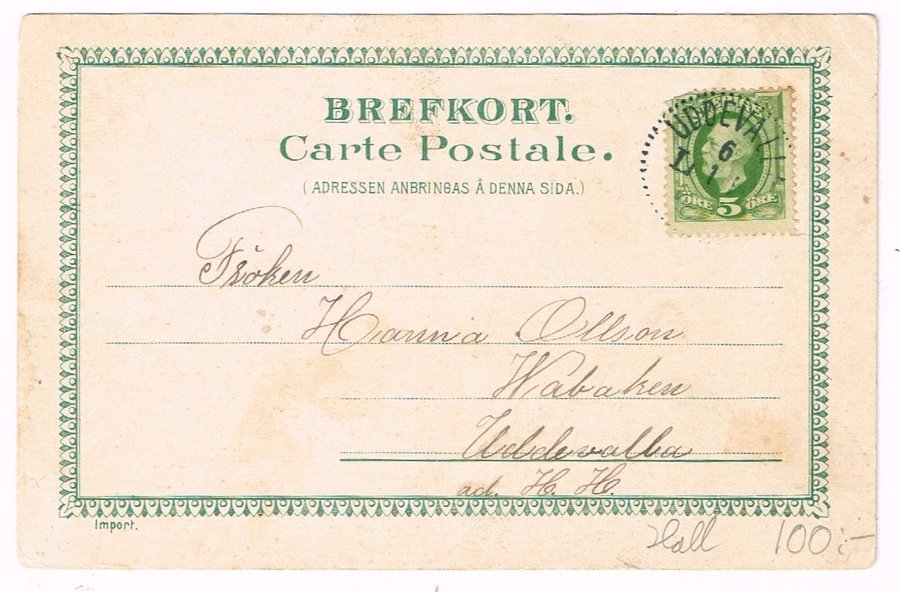 BREFKORT.
Carte Postale.
(ADRESSEN ANBRINGAS Å DENNA SIDA.)
UDDEVALL
6
1
ÖRE 5 ÖRE
Fröken
Hanna Ollson
Wabaken
Uddevalla
ad. H. H.
Import.
Hall 100:-